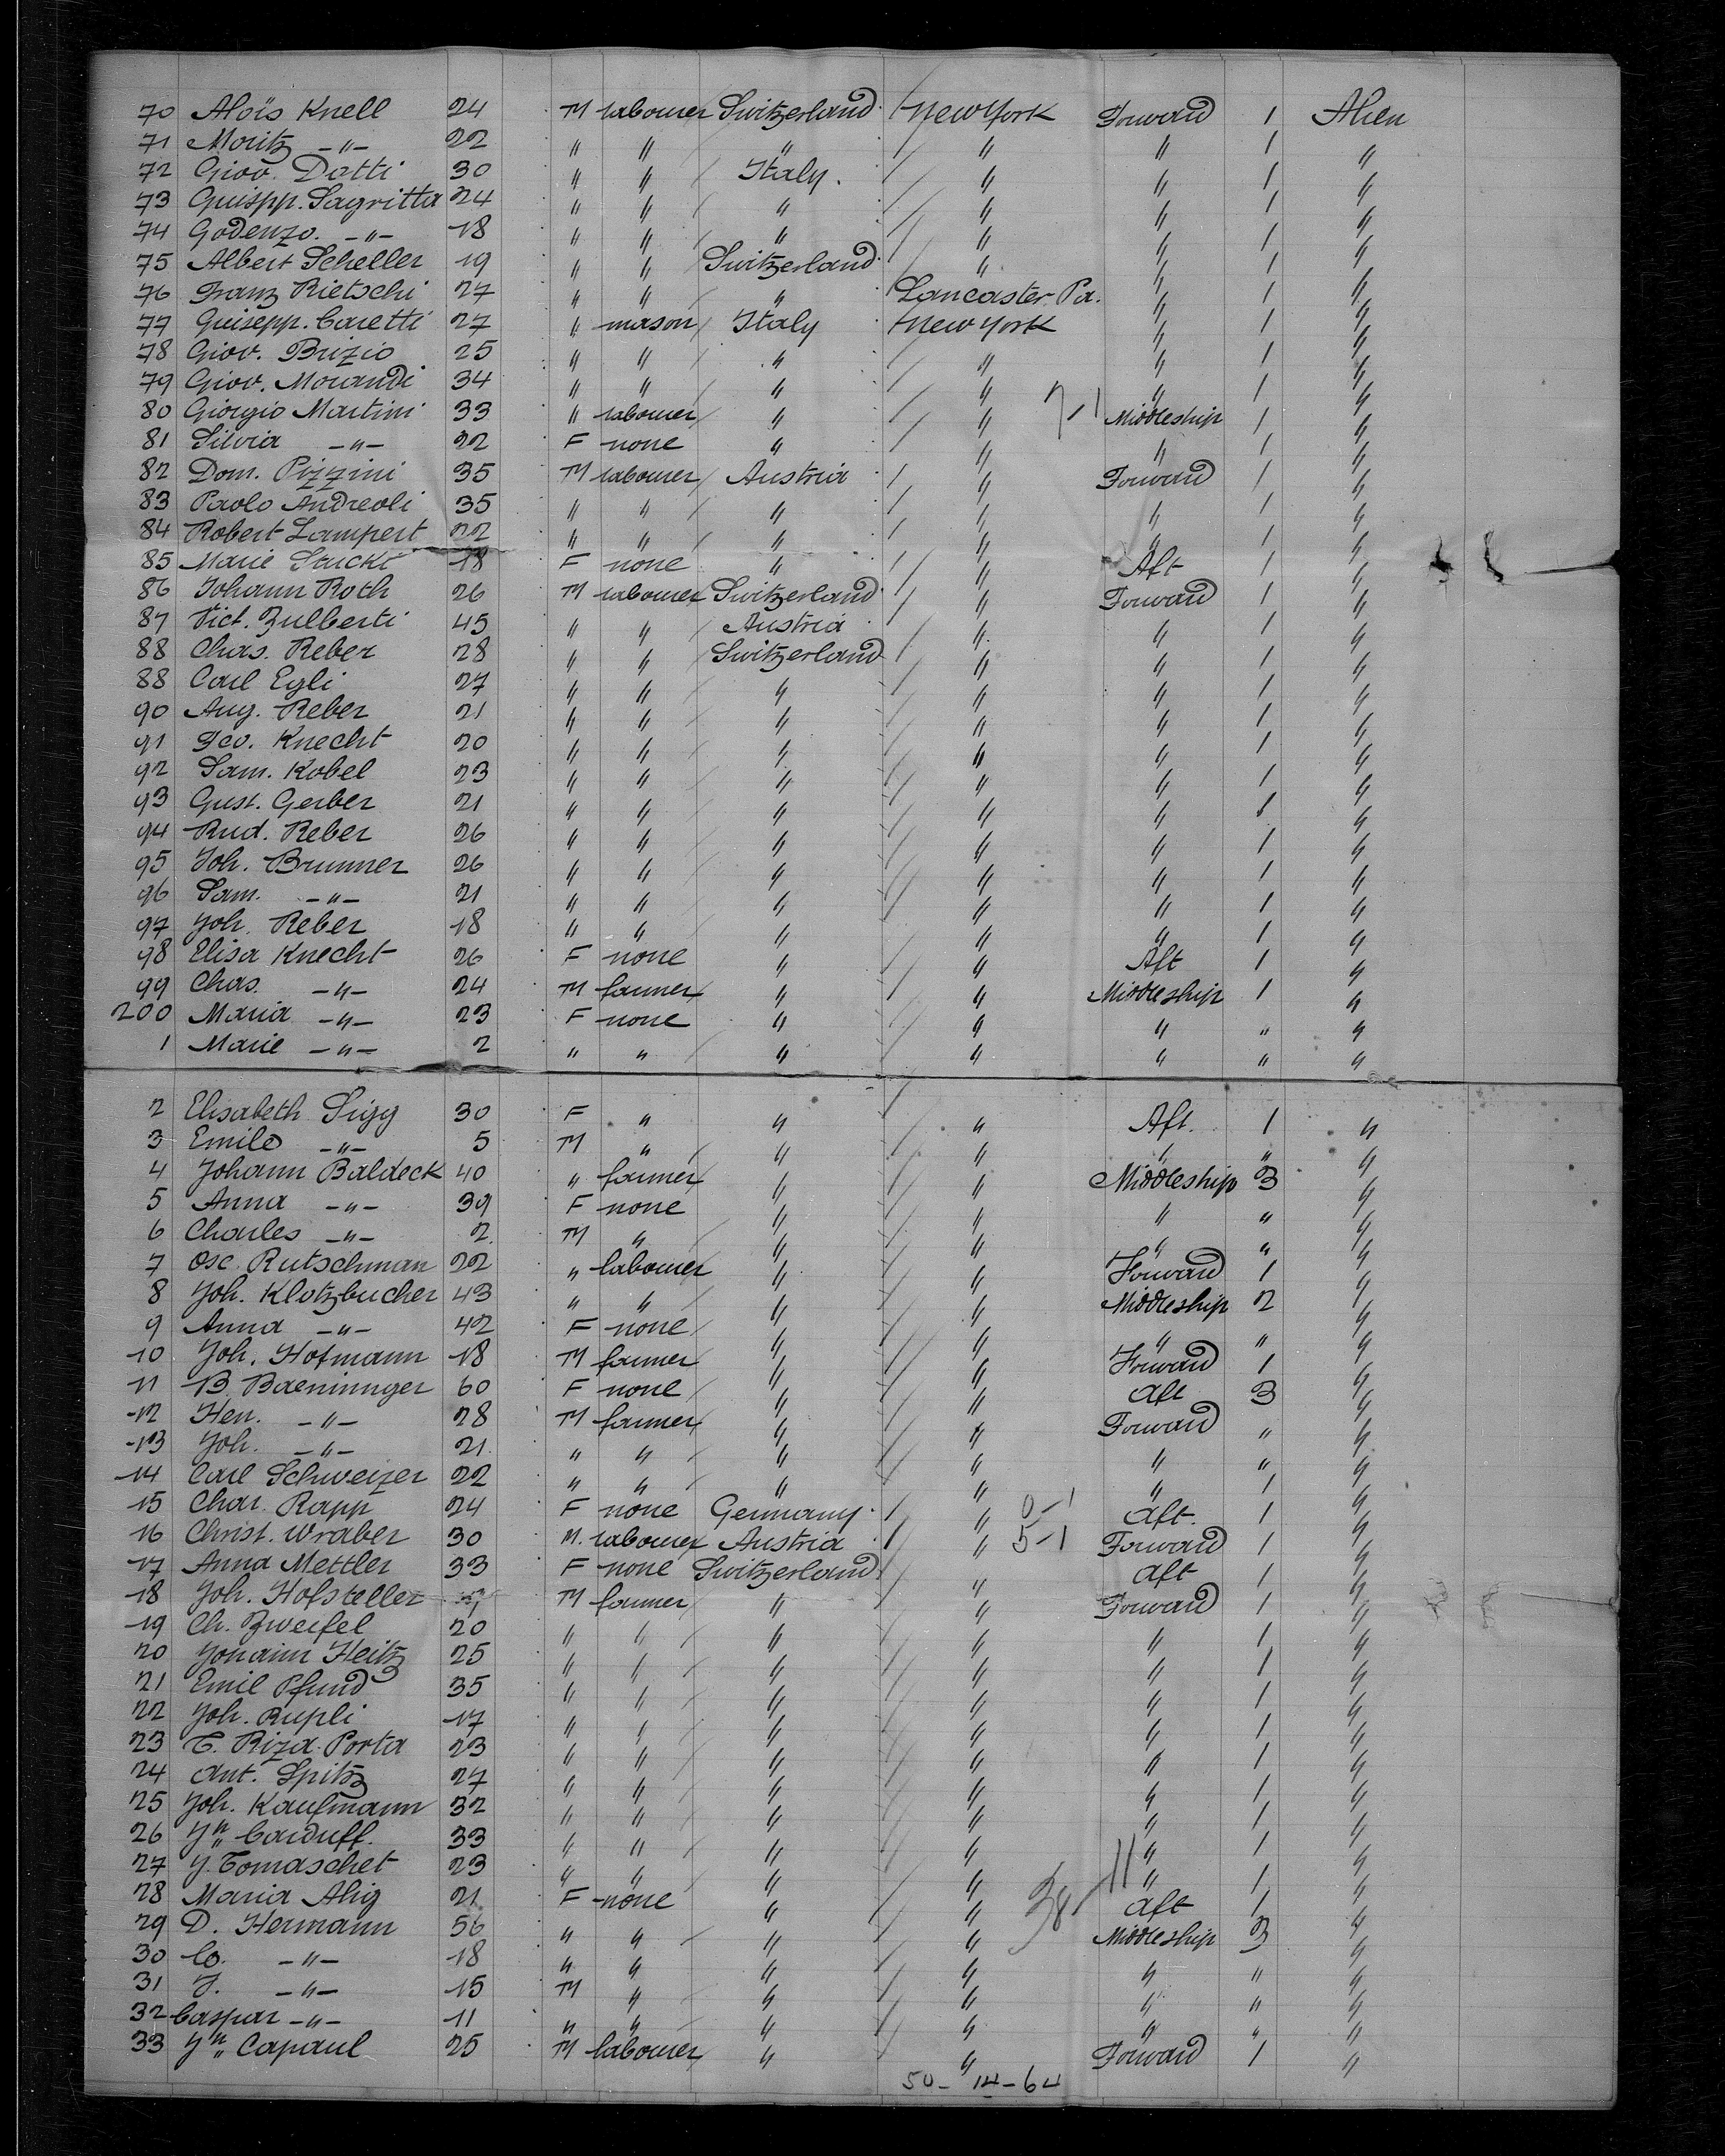 70 Aloïs Knell 24 M labourer Switzerland New York Forward 1 Alien
71 Moritz -"- 22 " " " " " 1 "
72 Giov. Dotti 30 " " Italy. " " 1 "
73 Guispp. Sagritta 24 " " " " " 1 "
74 Godenzo. -"- 18 " " " " " 1 "
75 Albert Scheller 19 " " Switzerland " " 1 "
76 Franz Rietschi 27 " " " Lancaster Pa. " 1 "
77 Guisepp. Caretti 27 " mason Italy New York " 1 "
78 Giov. Brizio 25 " " " " " 1 "
79 Giov. Morandi 34 " " " " " 1 "
80 Giorgio Martini 33 " labourer " " 7-1 Middleship 1 "
81 Silvia -"- 22 F none " " " 1 "
82 Dom. Pizzini 35 M labourer Austria " Forward 1 "
83 Paolo Andreoli 35 " " " " " 1 "
84 Robert Lampert 22 " " " " " 1 "
85 Marie Stucki 18 F none " " Aft 1 "
86 Johann Roth 26 M labourer Switzerland " Forward 1 "
87 Vict. Zulberti 45 " " Austria " " 1 "
88 Chas. Reber 28 " " Switzerland " " 1 "
88 Carl Egli 27 " " " " " 1 "
90 Aug. Reber 21 " " " " " 1 "
91 Feo. Knecht 20 " " " " " 1 "
92 Sam. Kobel 23 " " " " " 1 "
93 Gust. Gerber 21 " " " " " 1 "
94 Rud. Reber 26 " " " " " 1 "
95 Joh. Brunner 26 " " " " " 1 "
96 Sam. -"- 21 " " " " " 1 "
97 Joh. Reber 18 " " " " " 1 "
98 Elisa Knecht 26 F none " " Aft 1 "
99 Chas. -"- 24 M farmer " " Middleship 1 "
200 Maria -"- 23 F none " " " " "
1 Marie -"- 2 " " " " " " "
2 Elisabeth Sigg 30 F " " " Aft. 1 "
3 Emile -"- 5 M " " " " " "
4 Johann Baldeck 40 " farmer " " Middleship 3 "
5 Anna -"- 39 F none " " " " "
6 Charles -"- 2 M " " " " " "
7 Osc. Rutschman 22 " labourer " " Forward 1 "
8 Joh. Klotzbucher 43 " " " " Middleship 2 "
9 Anna -"- 42 F none " " " " "
10 Joh. Hofmann 18 M farmer " " Forward 1 "
11 B. Baeninnger 60 F none " " Aft 3 "
12 Hen. -"- 28 M farmer " " Forward " "
13 Joh. -"- 21 " " " " " " "
14 Carl Schweizer 22 " " " " " 1 "
15 Char. Rapp 24 F none Germany " 0-1 Aft. 1 "
16 Christ. Wraber 30 M. labourer Austria " 5-1 Forward 1 "
17 Anna Mettler 33 F none Switzerland " Aft 1 "
18 Joh. Hofsteller M farmer " " Forward 1 "
19 Ch. Zweifel 20 " " " " " 1 "
20 Johann Heitz 25 " " " " " 1 "
21 Emil Pfund 35 " " " " " 1 "
22 Joh. Rupli 17 " " " " " 1 "
23 T. Riza Porta 23 " " " " " 1 "
24 Ant. Spitz 27 " " " " " 1 "
25 Joh. Kaufmann 32 " " " " " 1 "
26 Jn. Carduff. 33 " " " " " 1 "
27 J. Tomaschet 23 " " " " 11 " 1 "
28 Maria Ahig 21 F none " " 38 Aft 1 "
29 D. Hermann 56 " " " " Middleship 3 "
30 Co. -"- 18 " " " " " " "
31 J. -"- 15 M " " " " " "
32 Caspar -"- 11 " " " " " " "
33 Jn. Capaul 25 M labourer " " Forward 1 "
50 - 14 - 64